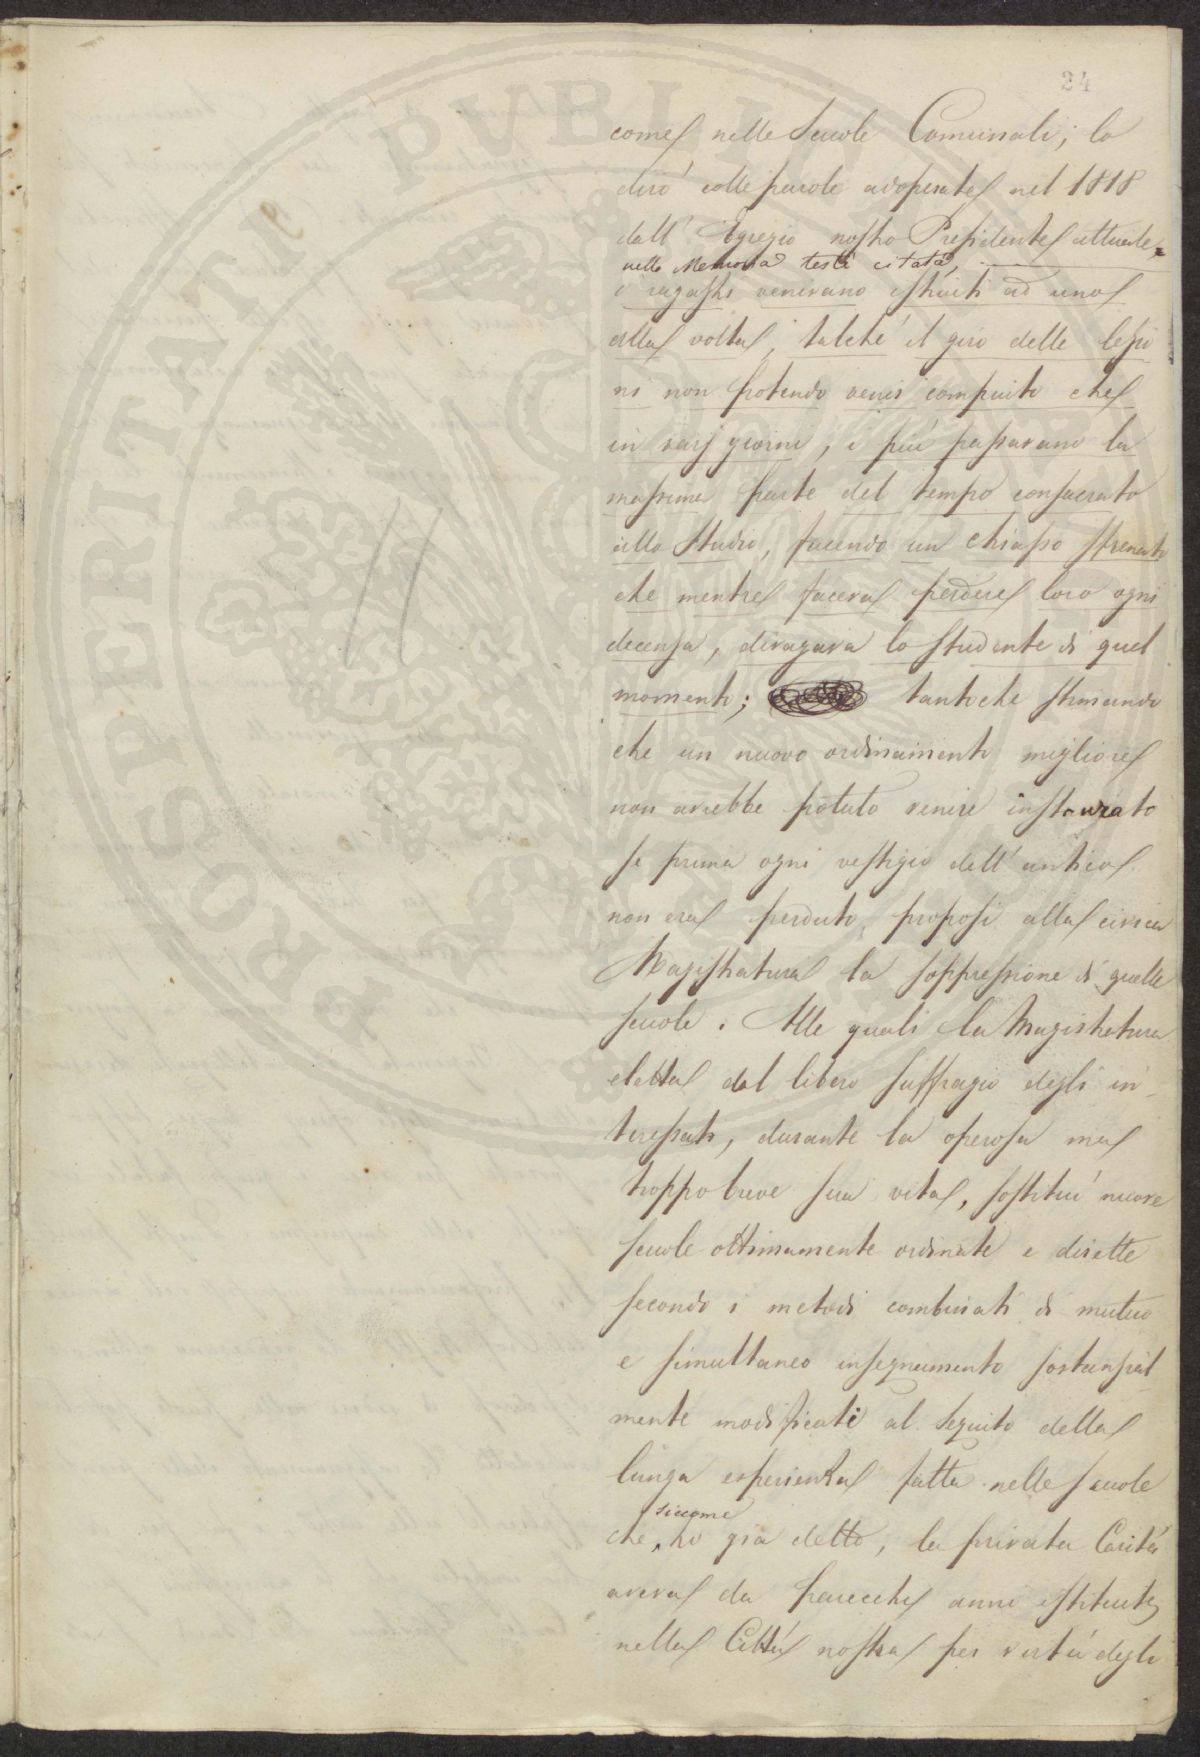 24
come nelle Scuole Comunali; lo
dirò colle parole adoperate nel 1818
dall' Egregio nostro Presidente attuale
nella Memoria testè citata,
i ragazzi venivano istruiti ad uno
alla volta, talchè il giro delle lezio
ni non potendo venir compiuto che
in varj giorni, i più passavano la
massima parte del tempo consacrato
allo studio, facendo un chiasso sfrenato
che mentre faceva perdere loro ogni
decenza, divagava lo studente di quel
momento; tantochè stimando
che un nuovo ordinamento migliore
non avrebbe potuto venire instaurato
se prima ogni vestigio dell' antico
non era perduto, proposi alla civica
Magistratura la soppressione di quelle
scuole. Alle quali la Magistratura
eletta dal libero suffragio degli in
teressati, durante la operosa ma
troppo breve sua vita, sostituì nuove
scuole ottimamente ordinate e dirette
secondo i metodi combinati di mutuo
e simultaneo insegnamento sostanzial
mente modificati al seguito della
lunga esperienza fatta nelle scuole
siccome
che, ho già detto, la privata Carità
aveva da parecchi anni istituite
nella Città nostra per virtù degli